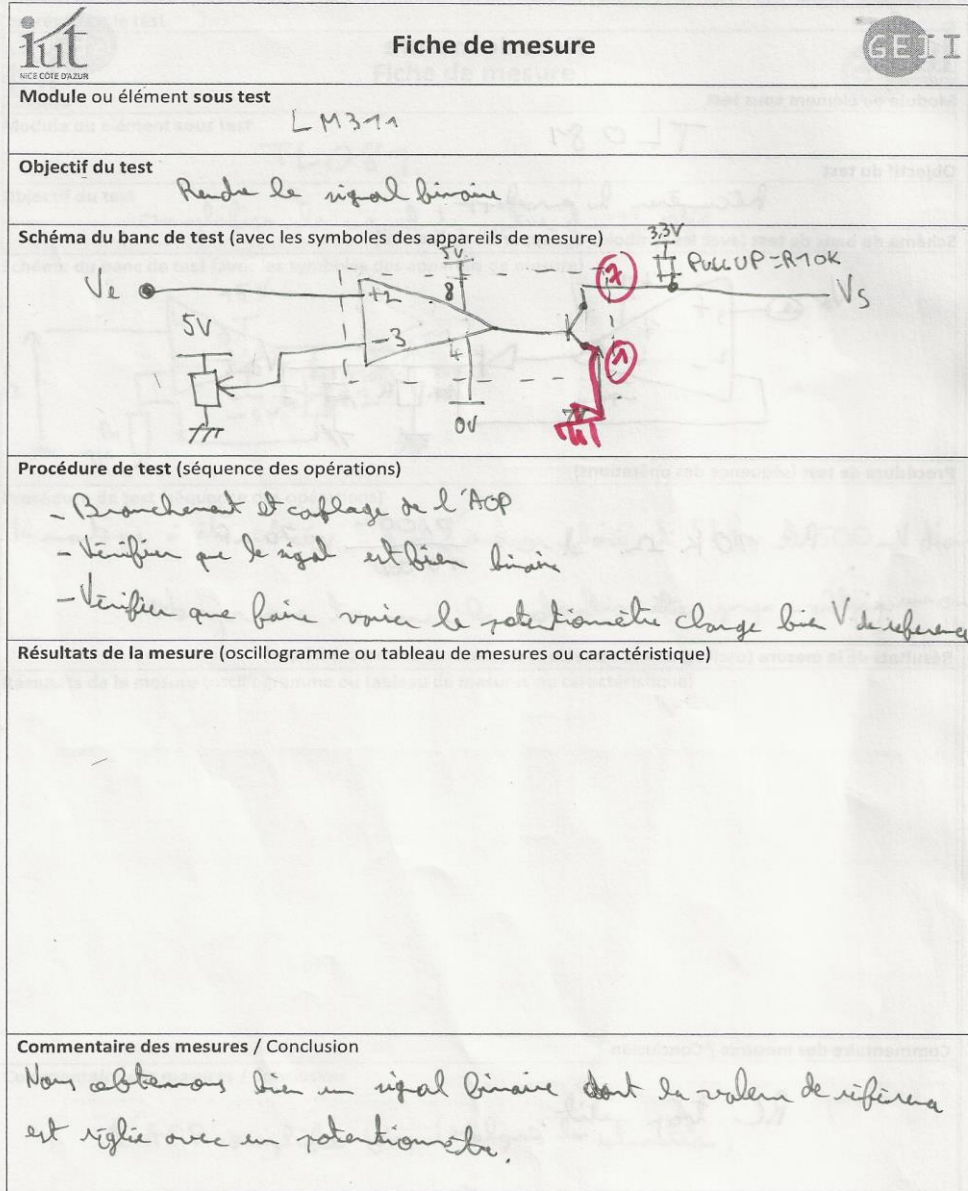 iut
NICE CÔTE D'AZUR
Fiche de mesure
GEII
Module ou élément sous test
LM311
Objectif du test
Rendre le signal binaire
Schéma du banc de test (avec les symboles des appareils de mesure)
3,3V
5V
PULL UP = R10K
Ve
+2
8
7
Vs
5V
-3
4
1
0V
Procédure de test (séquence des opérations)
- Branchement et cablage de l'AOP
- Vérifier que le signal est bien binaire
- Vérifier que faire varier le potentiomètre change bien V de reference
Résultats de la mesure (oscillogramme ou tableau de mesures ou caractéristique)
Commentaire des mesures / Conclusion
Nous obtenons bien un signal binaire dont la valeur de référence
est réglée avec un potentiomètre.